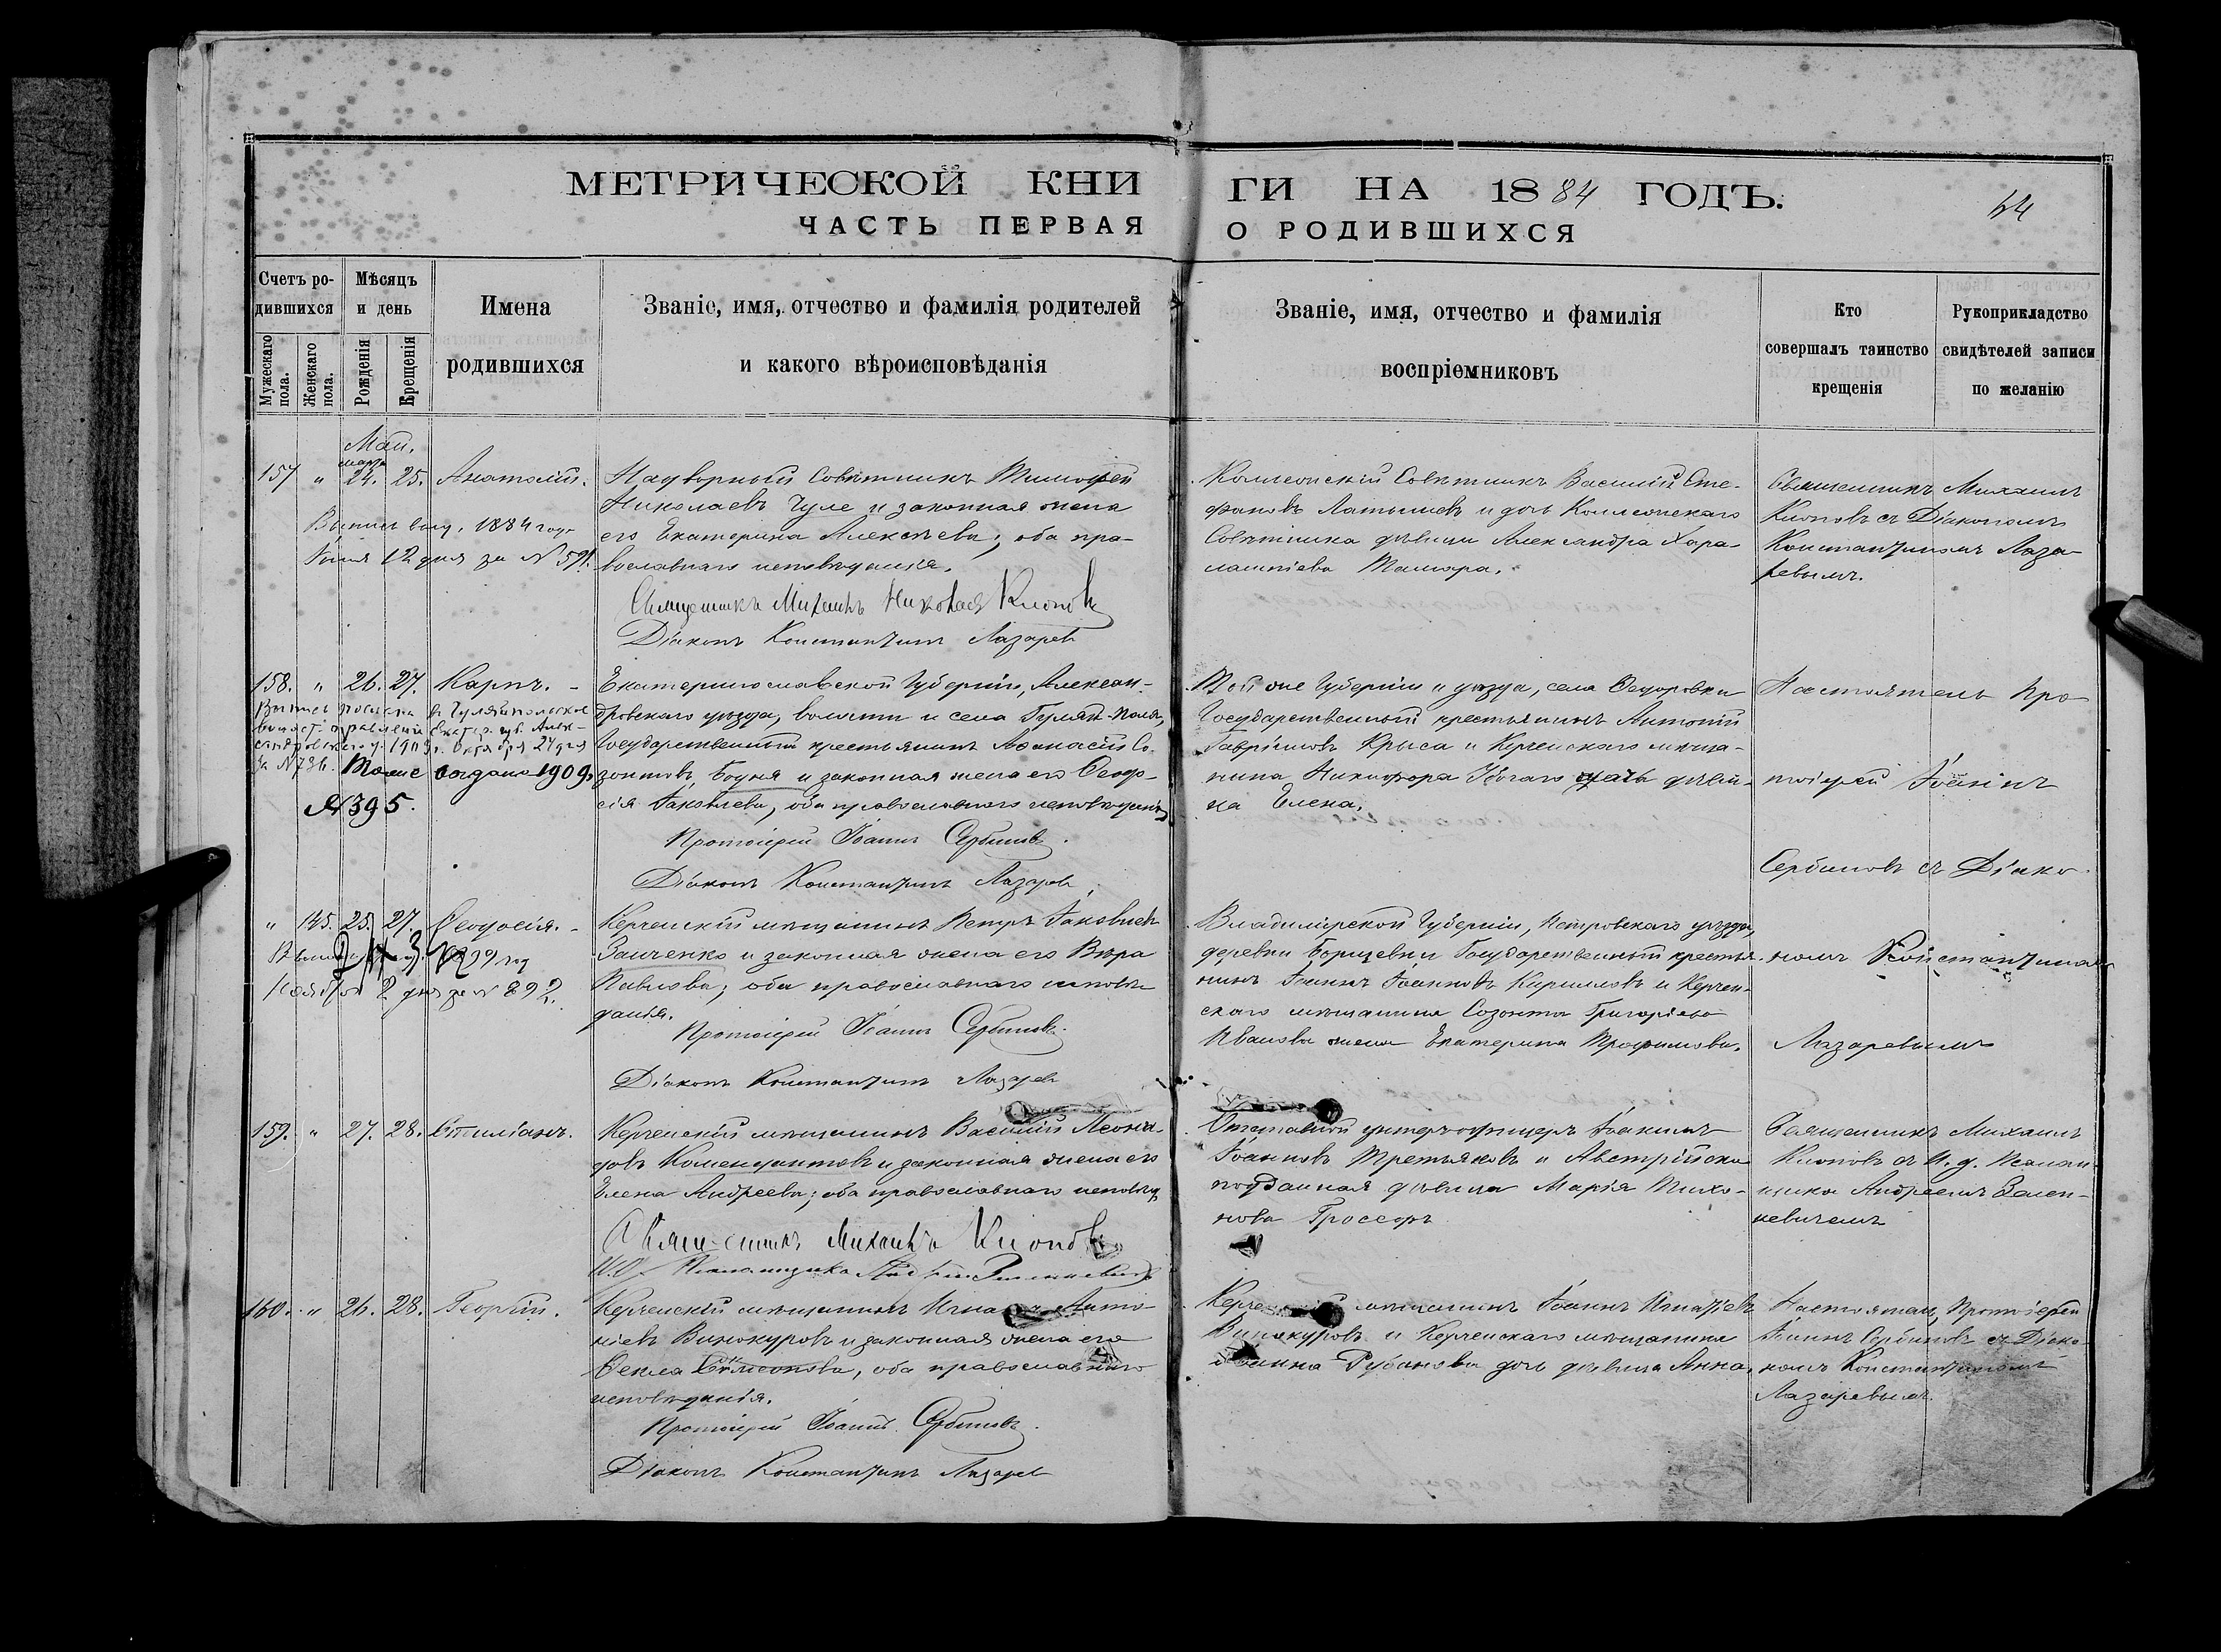 МЕТРИЧЕСКОЙ КНИ
ГИ НА 1884 ГОДЪ.
64
ЧАСТЬ ПЕРВАЯ
О РОДИВШИХСЯ
Счетъ ро-
дившихся
Мужескаго пола.
Женскаго пола.
Мѣсяцъ
и день
Рожденія
Крещенія
Имена
родившихся
Званіе, имя, отчество и фамилія родителей
и какого вѣроисповѣданія
Званіе, имя, отчество и фамилія
воспріемниковъ
Кто
совершалъ таинство
крещенія
Рукоприкладство
свидѣтелей записи
по желанію
Май.
марта
157 " 24. 25. Анатолій.
1884 года
12 дня за № 591.
Надворный Совѣтникъ Тимофей
Николаевъ Гуле и законная жена
его Екатерина Алексѣева; оба пра-
вославнаго исповѣданія.
Священникъ Михаилъ Николаев Клоповъ
Діаконъ Константинъ Лазарев
Коллежскій Совѣтникъ Василій Сте-
фановъ Латышевъ и дочь Коллежскаго
Совѣтника дѣвица Александра Хара-
лампіева
Священникъ Михаилъ
Клоповъ съ Діакономъ
Константиномъ Лаза-
ревымъ.
158. " 26. 27. Карпъ.
Выпись послана в Гуляйпольское
волост. правленіе Екатер. губ. Алек-
сандровскаго у. 1903 г. Октября 24 дня
за № 786. Тоже выдана 1909
№ 395.
Екатеринославской Губерніи, Алексан-
дровскаго уѣзда, волости и села Гуляй-Поля,
Государственный крестьянинъ Афанасій Со-
зонтовъ Бодня и законная жена его Феодо-
сія Іаковлева, оба православнаго исповѣданія
Протоіерей Іоаннъ Сербиновъ.
Діаконъ Константинъ Лазарев
Той же Губерніи и уѣзда, села Федоровки
Государственный крестьянинъ Антоній
Гавріиловъ Крыса и Керченскаго мѣща-
нина Никифора дочь дѣви-
ца Елена.
Настоятель Про-
тоіерей Іоаннъ
Сербиновъ съ Діако-
" 145. 25. 27. Феодосія.
1899 год
Ноября 2 дня за № 892.
Керченскій мѣщанинъ Петръ Іаковлевъ
Заиченко и законная жена его Вѣра
Павлова; оба православнаго исповѣ-
данія.
Протоіерей Іоаннъ Сербиновъ.
Діаконъ Константинъ Лазарев
Владимірской Губерніи, Петровскаго уѣзда,
деревни Борщевки Государственный крестья-
нинъ Іоаннъ Іоанновъ Кирилловъ и Керчен-
скаго мѣщанина Созонта Григорьева
Иванова жена Екатерина Трофимова.
номъ Константиномъ
Лазаревымъ
159. " 27. 28. Стиліанъ.
Керченскій мѣщанинъ Василій Леони-
довъ Комендантовъ и законная жена его
Елена Андреева; оба православнаго исповѣд.
Священникъ Михаилъ Клоповъ
И. д. Псаломщика Андрей Зеленкевичъ
Отставной унтеръ-офицеръ Іоакимъ
Іоанновъ Третьяковъ и Австрійская
подданная дѣвица Марія Тихо-
нова
Священникъ Михаилъ
Клоповъ съ И. д. Псалом-
щика Андреемъ Зелен-
кевичемъ
160. " 26. 28. Георгій.
Керченскій мѣщанинъ Анто-
ніевъ Винокуровъ и законная жена его
Фекла Симеонова, оба православнаго
исповѣданія.
Протоіерей Іоаннъ Сербиновъ.
Діаконъ Константинъ Лазарев
мѣщанинъ Іоаннъ Игнатіевъ
Винокуровъ и Керченскаго мѣщанина
Рубанова дочь дѣвица Анна.
Настоятель, Протоіерей
Іоаннъ Сербиновъ съ Діако-
номъ Константиномъ
Лазаревымъ.